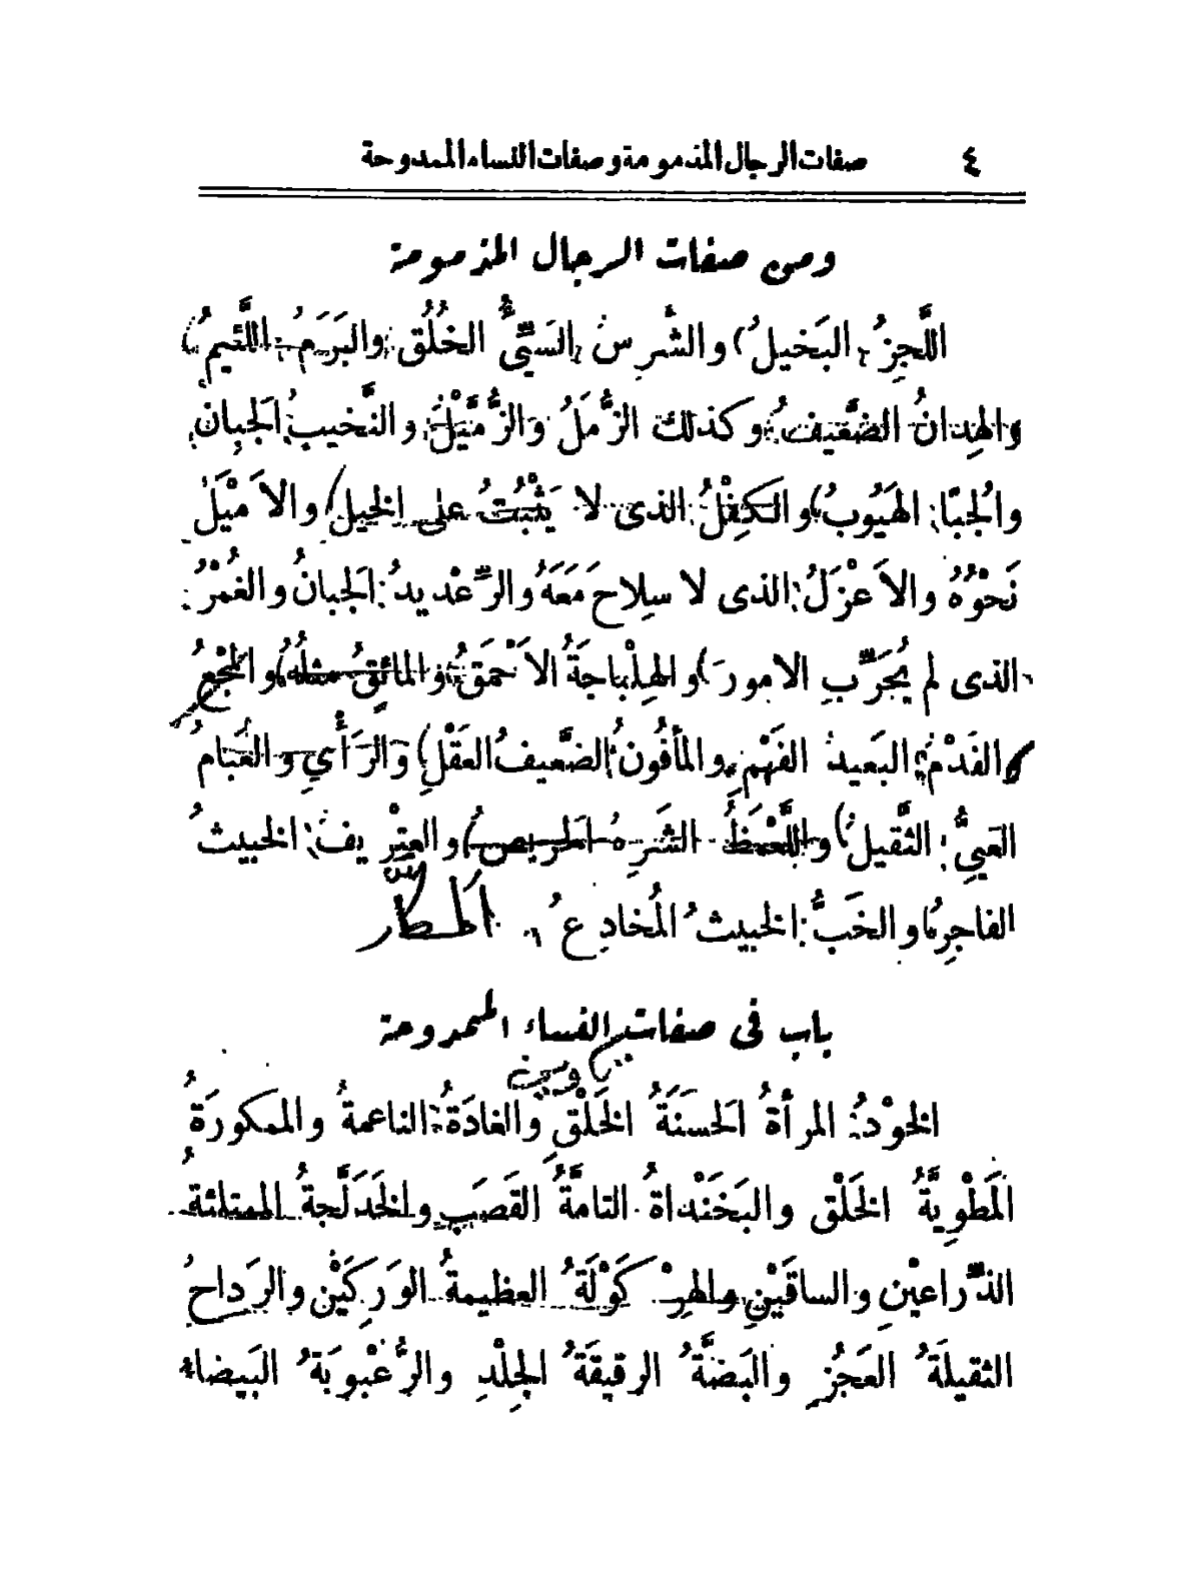 ٤ صفات الرجال المذمومة وصفات النساء الممدوحة
ومن صفات الرجال المذمومة
اللَّحِزُ البَخيلُ والشَّرِسُ السَّيِّئُ الخُلُقِ والبَرَمُ اللَّئيمُ
والهِدانُ الضَّعيفُ وكذلك الزُّمَّلُ وَالزُّمَّيْلُ والنَّخيبُ الجَبانُ
والجُبَّا الهَيُوبُ والكِفْلُ الذى لا يَثْبُتُ على الخيل والاَمْيَلُ
نَحْوُهُ والاَعْزَلُ الذى لا سِلاحَ مَعَهُ والرِّعْديدُ الجَبانُ والغُمْرُ
الذى لم يُجَرِّبِ الامورَ والهِلْباجَةُ الاَحْمَقُ والمائِقُ مثلُهُ والمِجْعُ
والفَدْمُ البَعيدُ الفَهْمِ والمأفُونُ الضَّعيفُ العَقْلِ وَالرَّأيِ والعَبَامُ
العَيِيُّ الثَّقيلُ واللَّعْمَظُ الشَّرِهُ الحَريصُ والعِتْرِيفُ الخبيثُ
الفاجِرُ والخَبُّ الخبيثُ المُخادِعُ المكّار
باب فى صفات النساء الممدوحة
الخَوْدُ المرأةُ الحَسنَةُ الخَلْقِ وَالغادَةُ الناعمةُ والممكورَةُ
المَطْوِيَّةُ الخَلْقِ والبَخَنْداةُ التامَّةُ القَصَبِ والخَدَلَّجةُ الممتلئةُ
الذِّراعيْنِ والساقَيْنِ والهِرْكَوْلَةُ العظيمةُ الوَرِكَيْنِ والرَداحُ
الثقيلَةُ العَجُزِ والبَضَّةُ الرقيقَةُ الجِلْدِ والرُّعْبوبَةُ البَيضاء